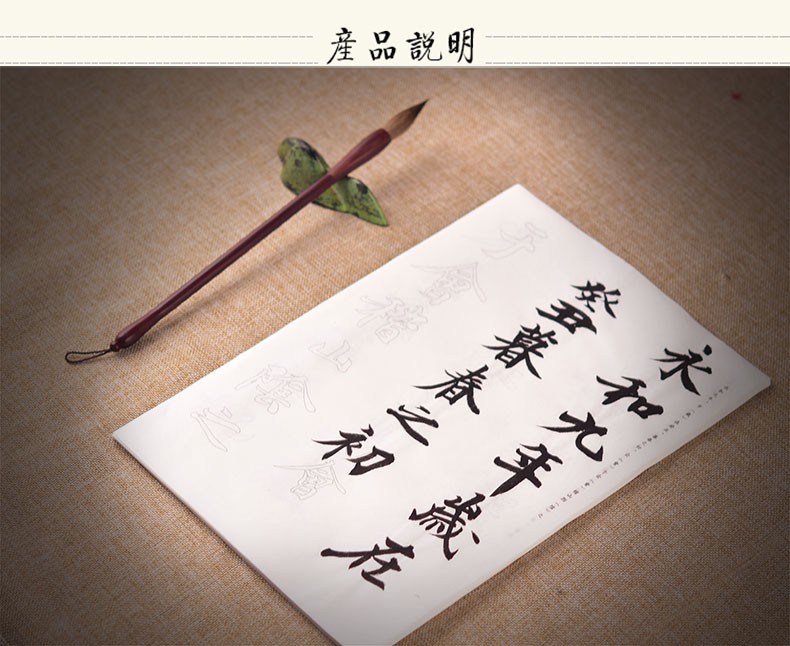 産品説明
永和九年歲在
癸丑暮春之初
于會稽山陰之
會